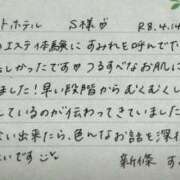 トホテル S様♡ R8.4.14
エステ体験にすみれを呼んでた
しかったです♡つるすべなお肌に
ました！早い段階からむくむくし
しているのが伝わってきていました
い出来たら、色んなお話を深れ
いです
新條 す